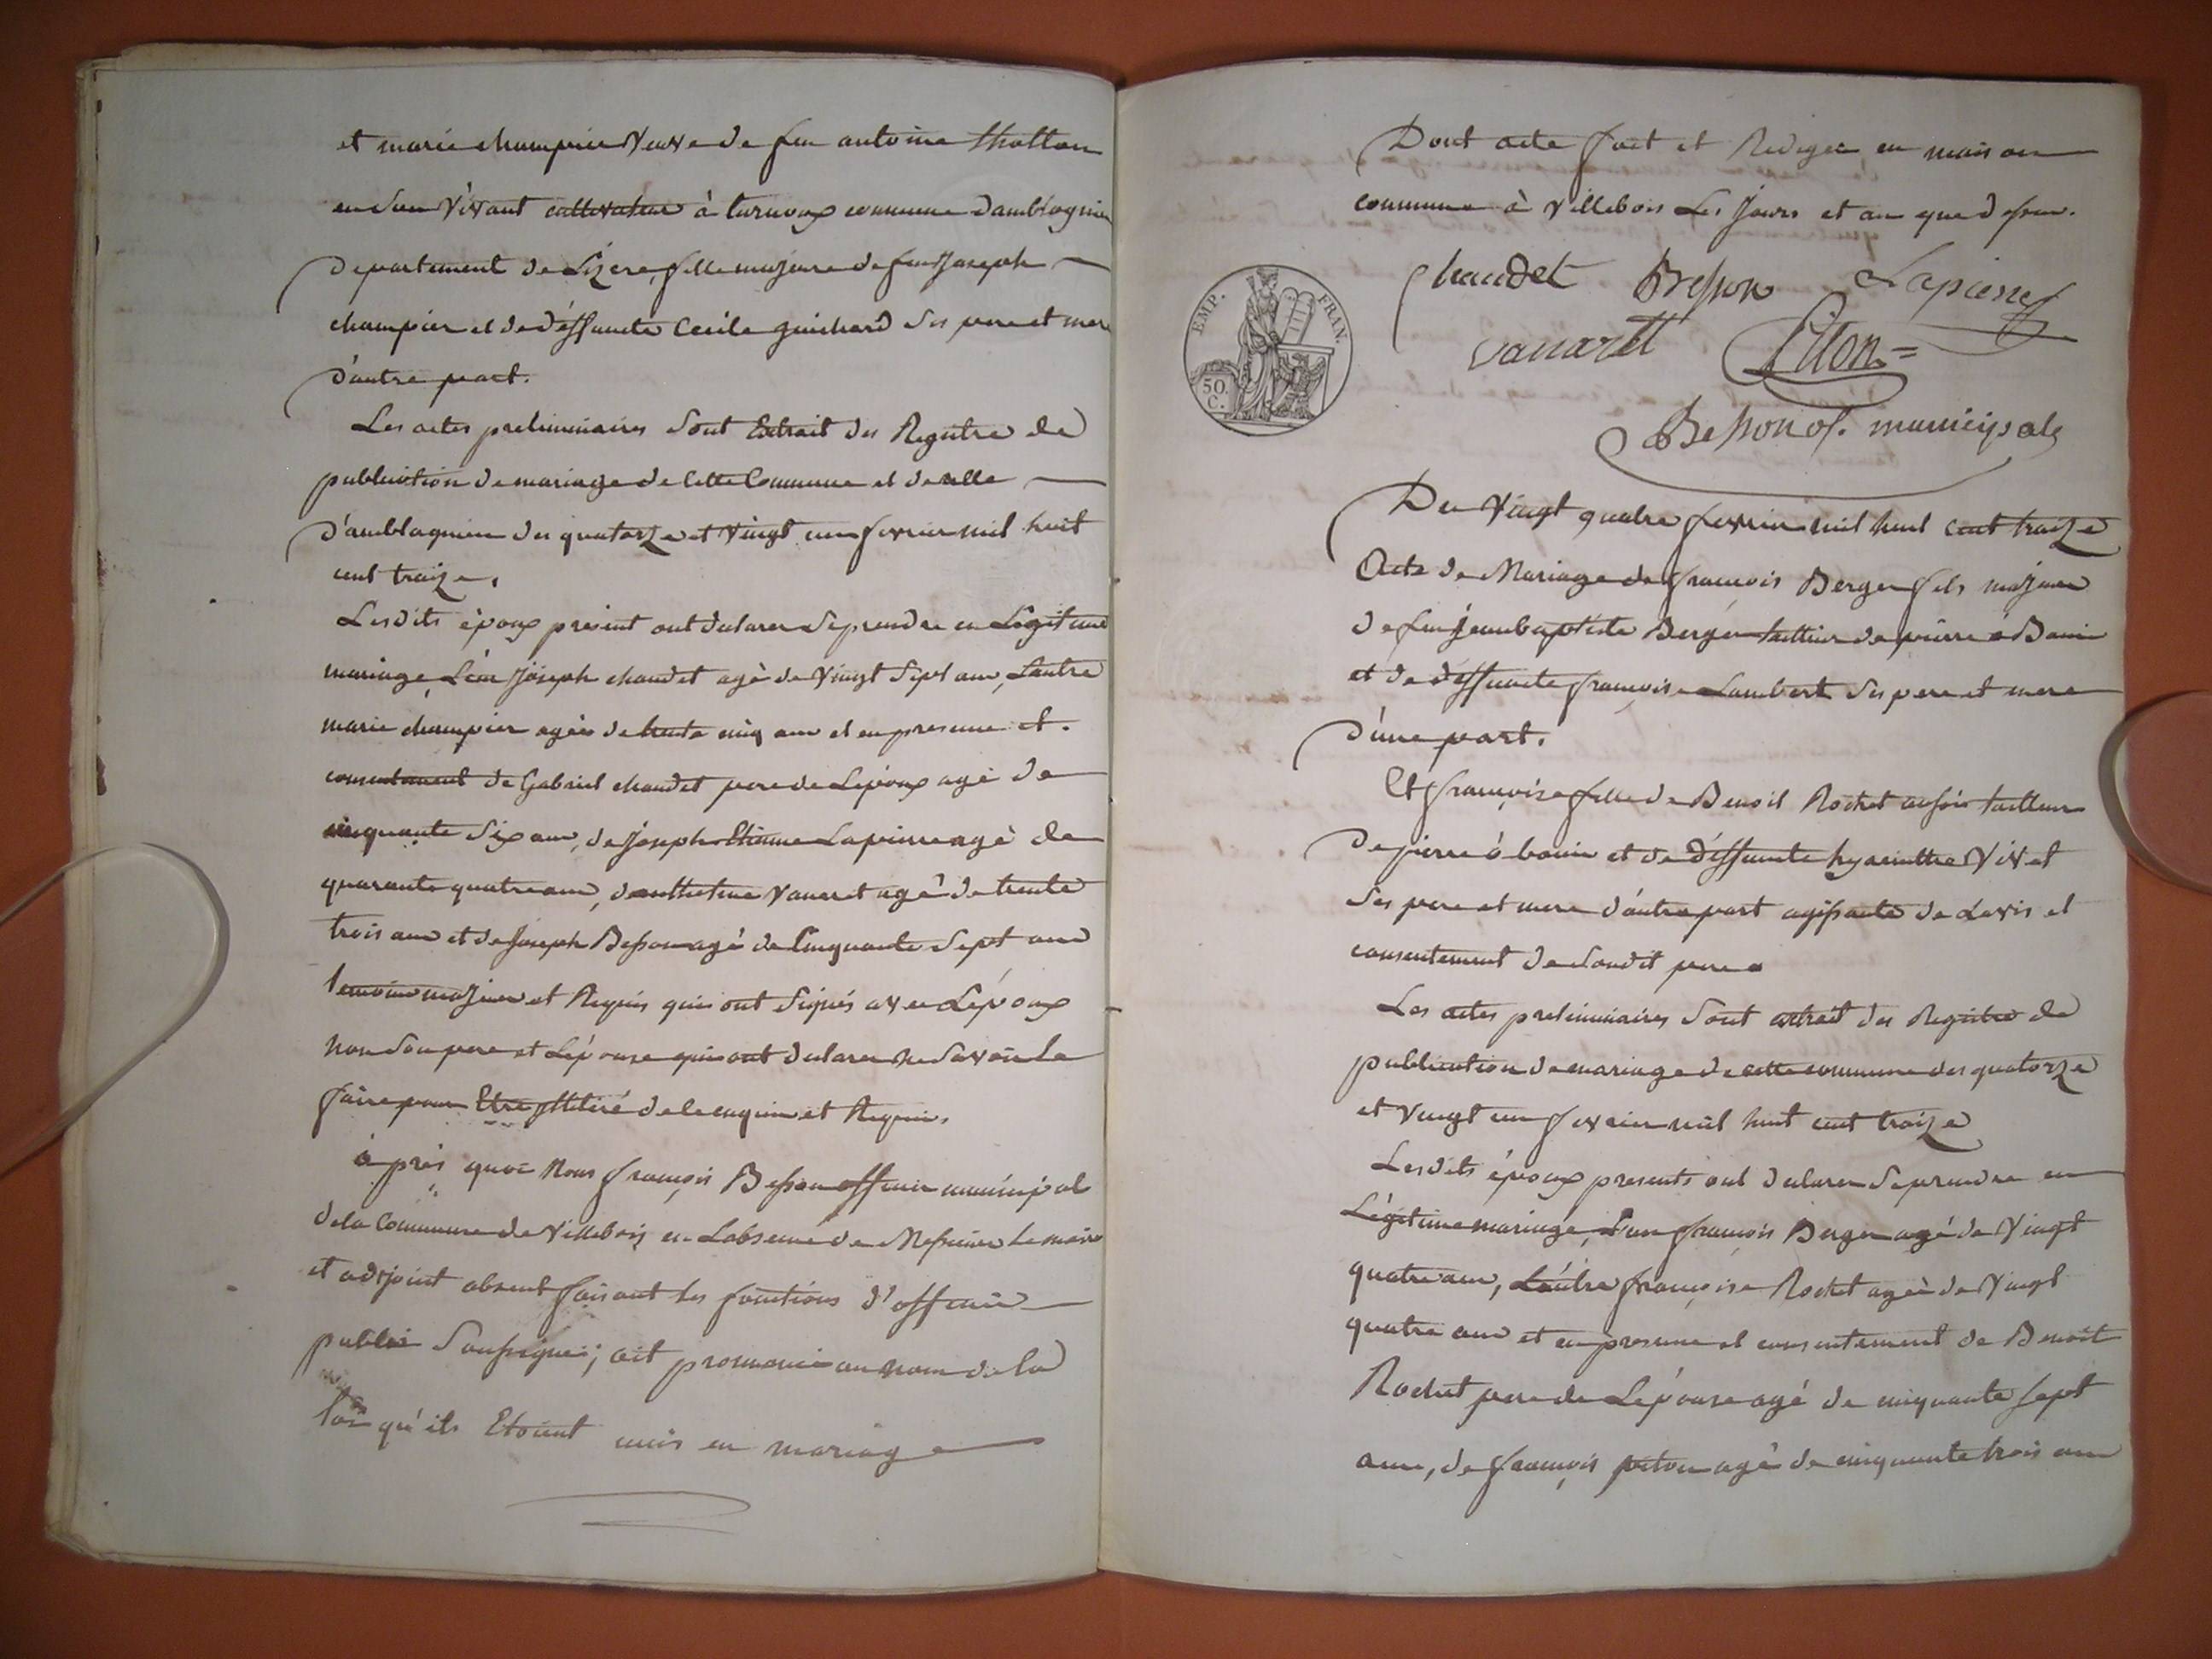 et marie champier Veuve de feu antoine thotton
en son vivant cultivateur à turnoux commune damblagnieu
Departement de Lizere, fille majeure de feu Joseph
champier et de déffuncte Cecile guichard ses pere et mere
D'autre part.
Les actes preliminaires sont Extrait des Registre de
publication de mariage de Cette Commune et de celle
D'amblagnieu des quatorze et Vingt un fevrier mil huit
cent traize.
Lesdits époux présent ont declarer se prendre en Légitime
mariage, L'un Joseph chaudet agé de Vingt Sept ans, Lautre
marie champier agée de trente cinq ans et en presence et
consentement de Gabriel chaudet pere de Lépoux agé de
cinquante Six ans, de Joseph Etienne Lapierre agé de
quarante quatre ans, de Vanaret agé de trente
trois ans et de Joseph Besson agé de Cinquante Sept ans
temoins majeur et Requis qui ont Signés avec Lépoux
non son pere et Lépouse qui ont declarer ne Savoir le
faire pour Etre de ce enquis et Requis.
après quoi Nous françois Besson officier municipal
de la Commune de Villebois en Labsence de Messieurs le maire
et adjoint absent faisant les fonctions d'officier
public Soussigné; ait prononcé au nom de la
loi qu'ils Etoient unis en mariage
Dont acte fait et Rediger en maison
commune à Villebois Les Jours et an que dessus.
EMP. FRAN.
50. C.
Chaudet Besson Lapierre
Vanaret Piton
Besson of. municipale
Du Vingt quatre fevrier mil huit cent traize
Acte de Mariage de françois Berger fils majeur
de feu Jean baptiste Berger tailleur de pierre à Bouis
et de déffuncte françoise Lambert Ses pere et mere
D'une part.
Et françoise fille de Benoit Rochet aussi tailleur
De pierre à bouis et de déffuncte hyacinthe Vivet
Ses pere et mere d'autre part agissante de Lavis et
consentement de Sondit pere
Les actes preliminaires Sont extrait des Registre de
publication de mariage de cette commune des quatorze
et vingt un fevrier mil huit cent traize
Lesdits époux presents ont declarer Se prendre en
Légitime mariage, L'un françois Berger agé de Vingt
quatre ans, Lautre françoise Rochet agée de Vingt
quatre ans et en presence et consentement de Benoit
Rochet pere de Lépouse agé de cinquante sept
ans, de françois piton agé de cinquante trois ans